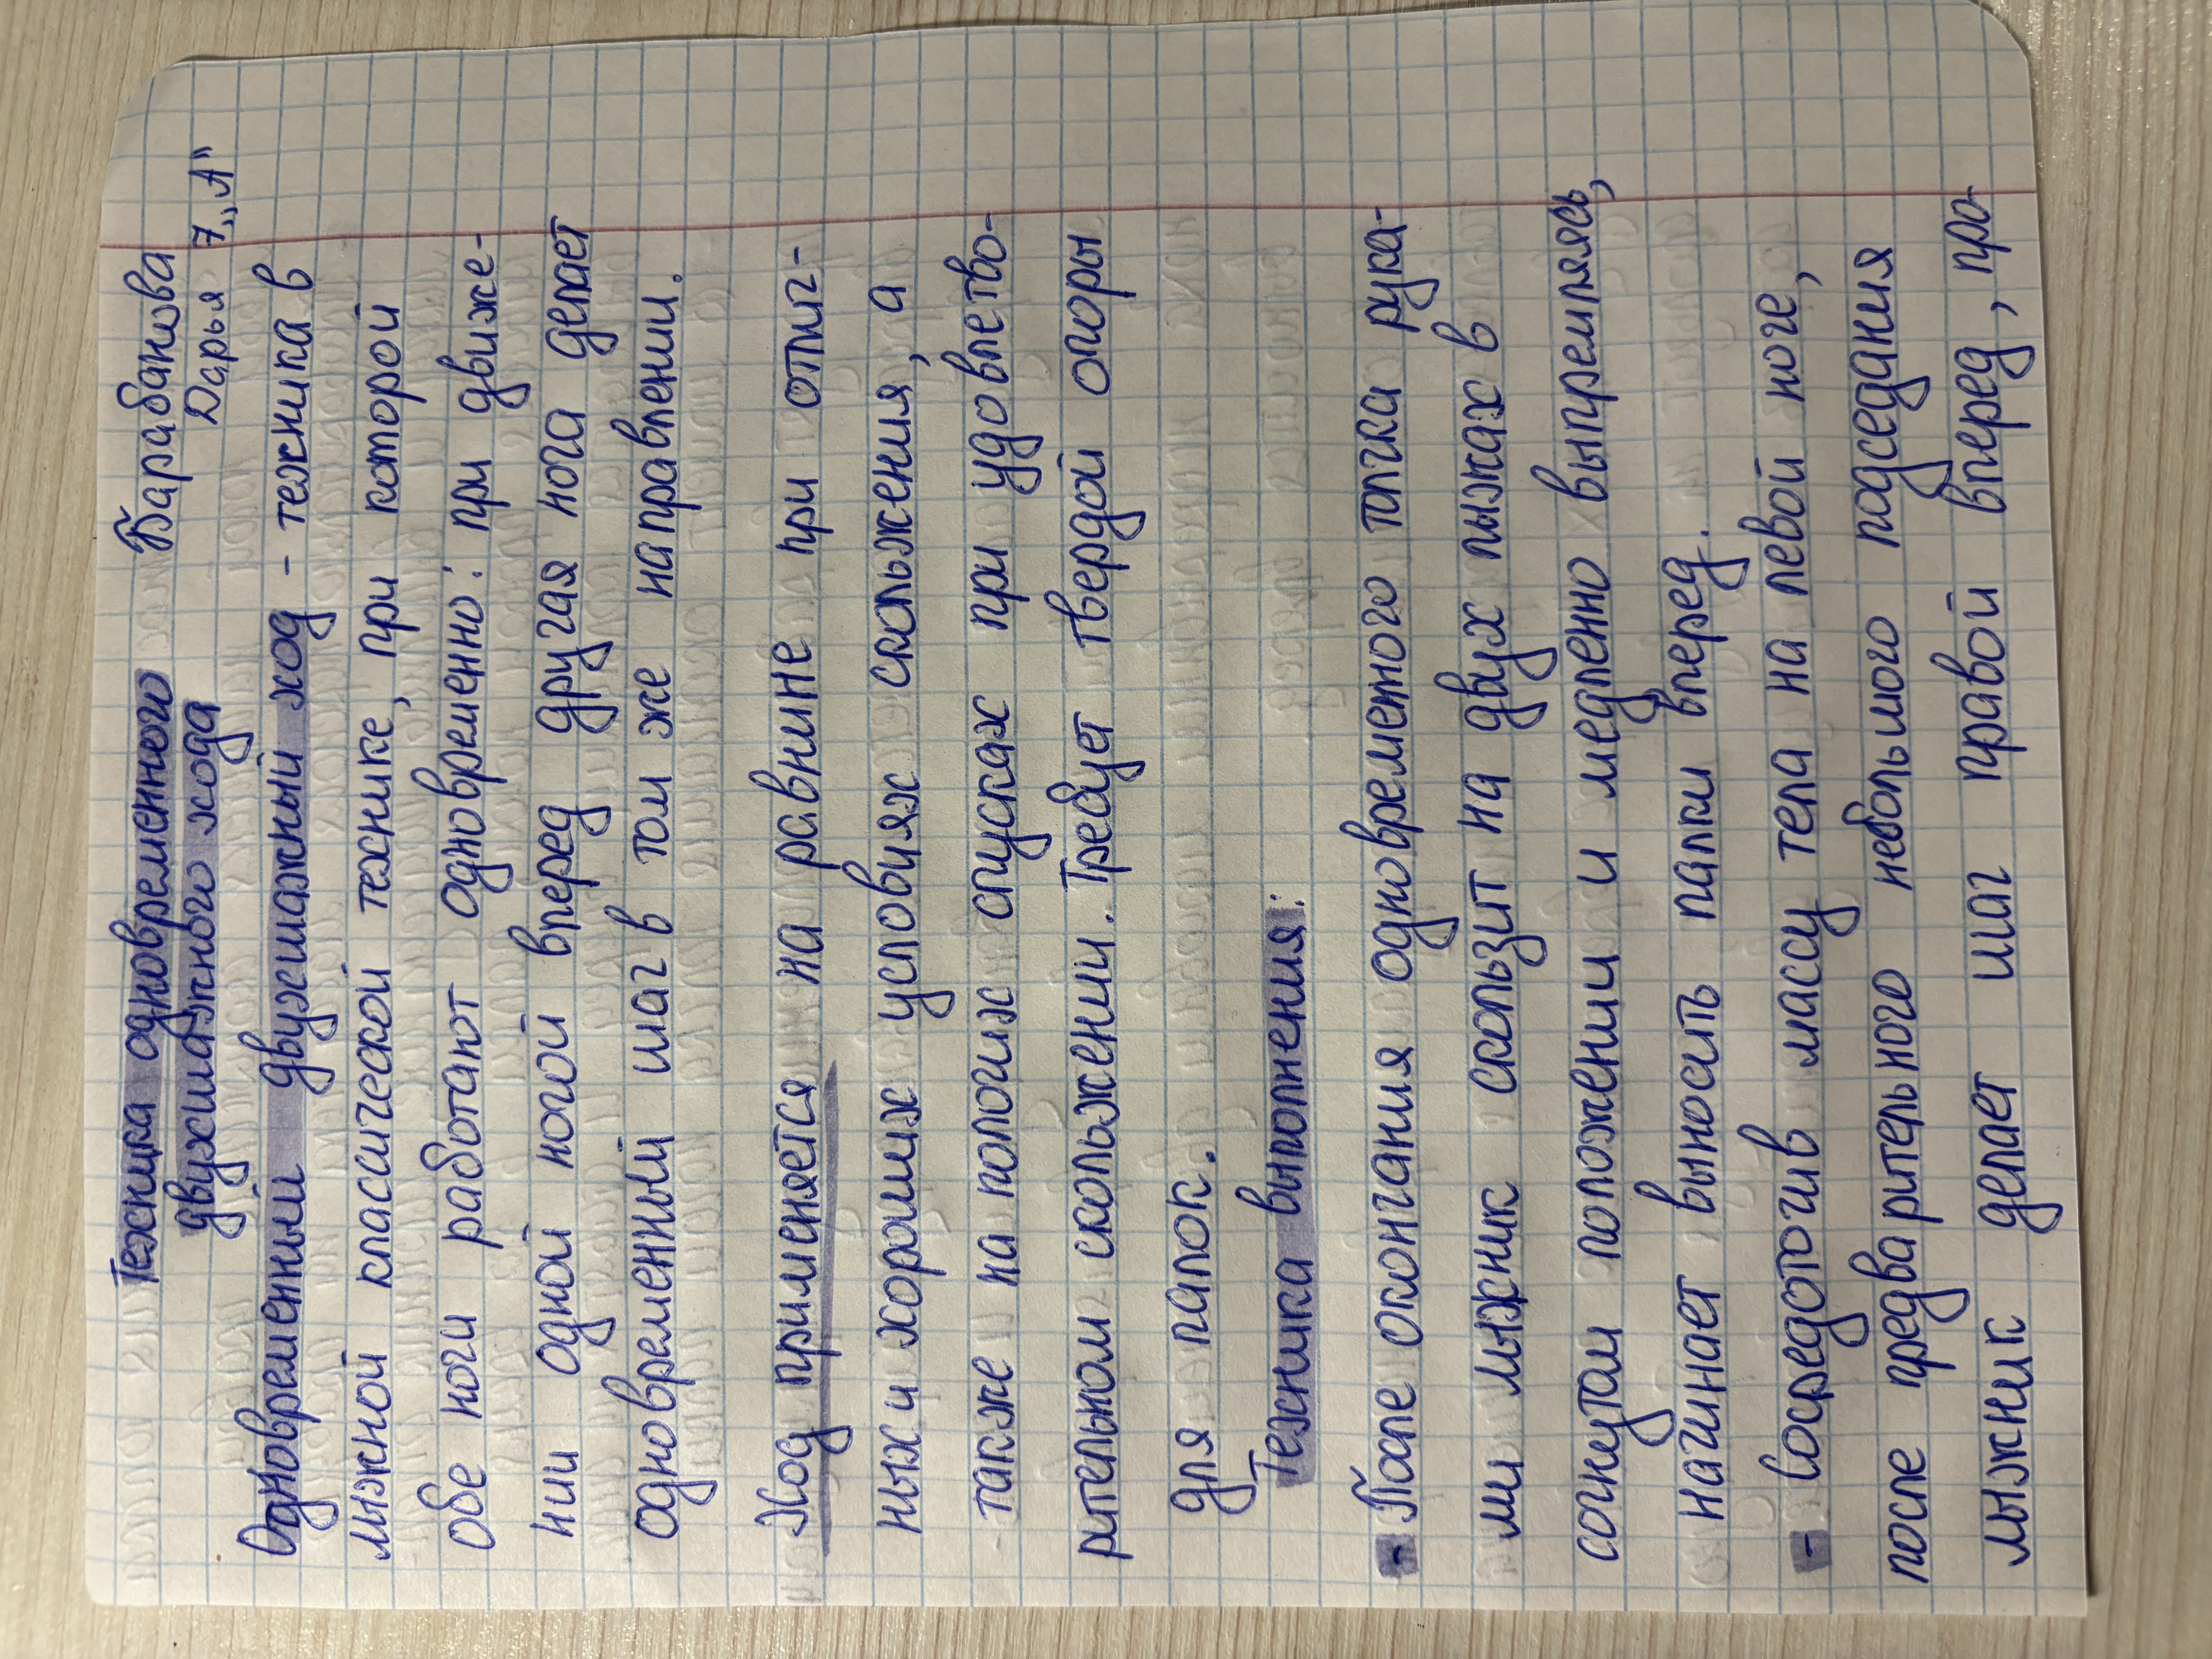 Техника одновременного Барабанова
двухшажного хода Дарья 7„А"
Одновременный двухшажный ход - техника в
лыжной классической технике, при которой
обе ноги работают одновременно: при движе-
нии одной ногой вперед другая нога делает
одновременный шаг в том же направлении.
Ход применяется на равнине при отлич-
ных и хороших условиях скольжения, а
также на пологих спусках при удовлетво-
рительном скольжении. Требует твердой опоры
для палок.
Техника выполнения:
- После окончания одновременного толчка рука-
ми лыжник скользит на двух лыжах в
согнутом положении и медленно выпремляясь,
начинает выносить палки вперед.
- Сосредоточив массу тела на левой ноге,
после предварительного небольшого подседания
лыжник делает шаг правой вперед, про-